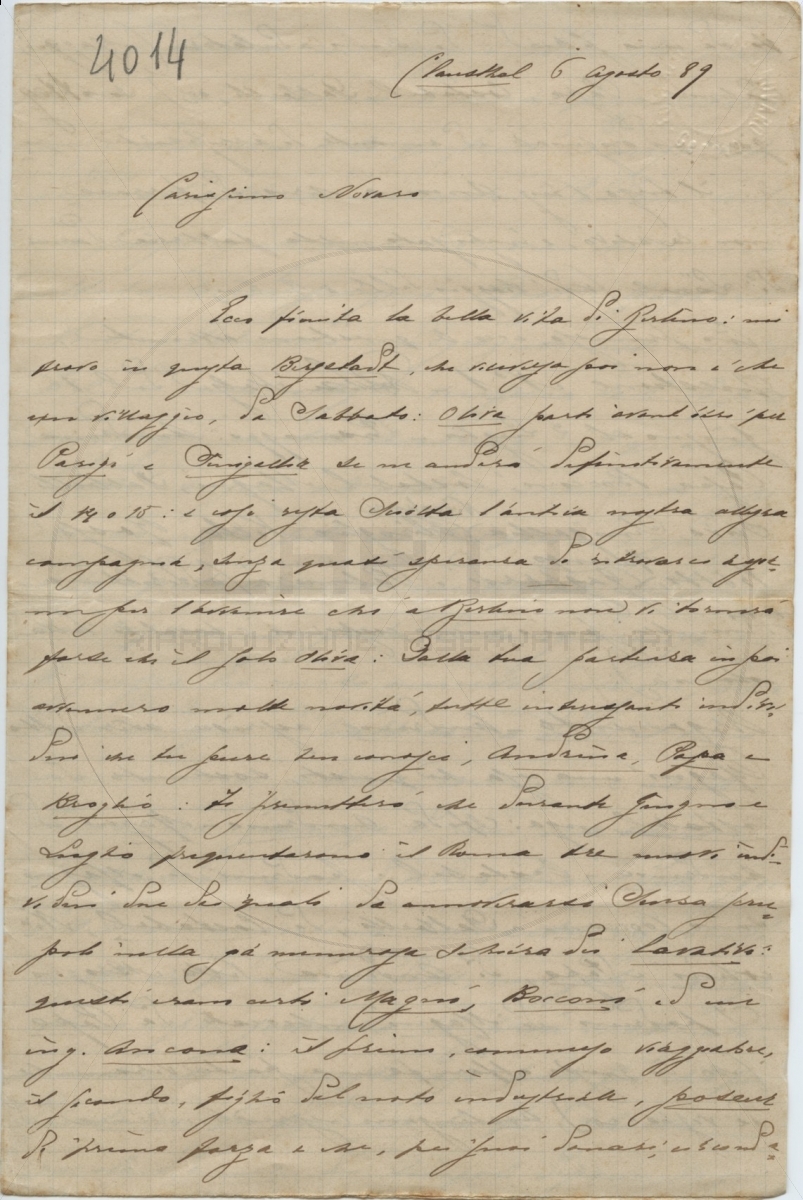 4014
Clausthal 6 agosto 89
Carissimo Novaro
Ecco finita la bella vita di Berlino: mi
trovo in questa Bergstadt, che viceversa poi non è che
un villaggio, da Sabbato: Oliva partì avant'ieri per
Parigi e Sinigallia se ne anderà definitivamente
il 14 o 15: e così resta sciolta l'antica nostra allegra
compagnia, senza quasi speranza di ritrovarci
per l'avvenire chè a Berlino non vi tornerà
forse che il solo Oliva: Dalla tua partenza in poi
avvennero molte novità, tutte interessanti indivi-
dui che tu pure ben conosci, Andreina, Papa e
Broglio: Ti premetterò che durante Giugno e
Luglio frequentarono il Roma tre nuovi indi-
vidui due dei quali da annoverarsi senza scru-
poli nella già numerosa schiera dei lavativi:
questi erano certi Magni, Bocconi ed un
ing. Ancona: il primo, commesso viaggiatore,
il secondo, figlio del noto industriale, poseur
di prima forza e che, pei suoi denari, circonda-